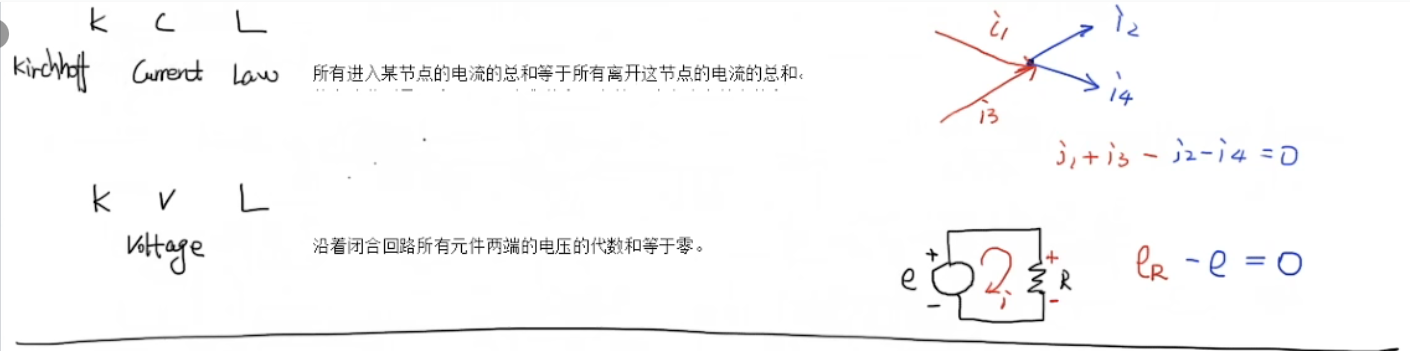 K C L
Kirchhoff Current Law 所有进入某节点的电流的总和等于所有离开这节点的电流的总和。
i1 i2
i3 i4
i1+i3-i2-i4=0
K V L
Voltage 沿着闭合回路所有元件两端的电压的代数和等于零。
e + - i + - R
eR-e=0